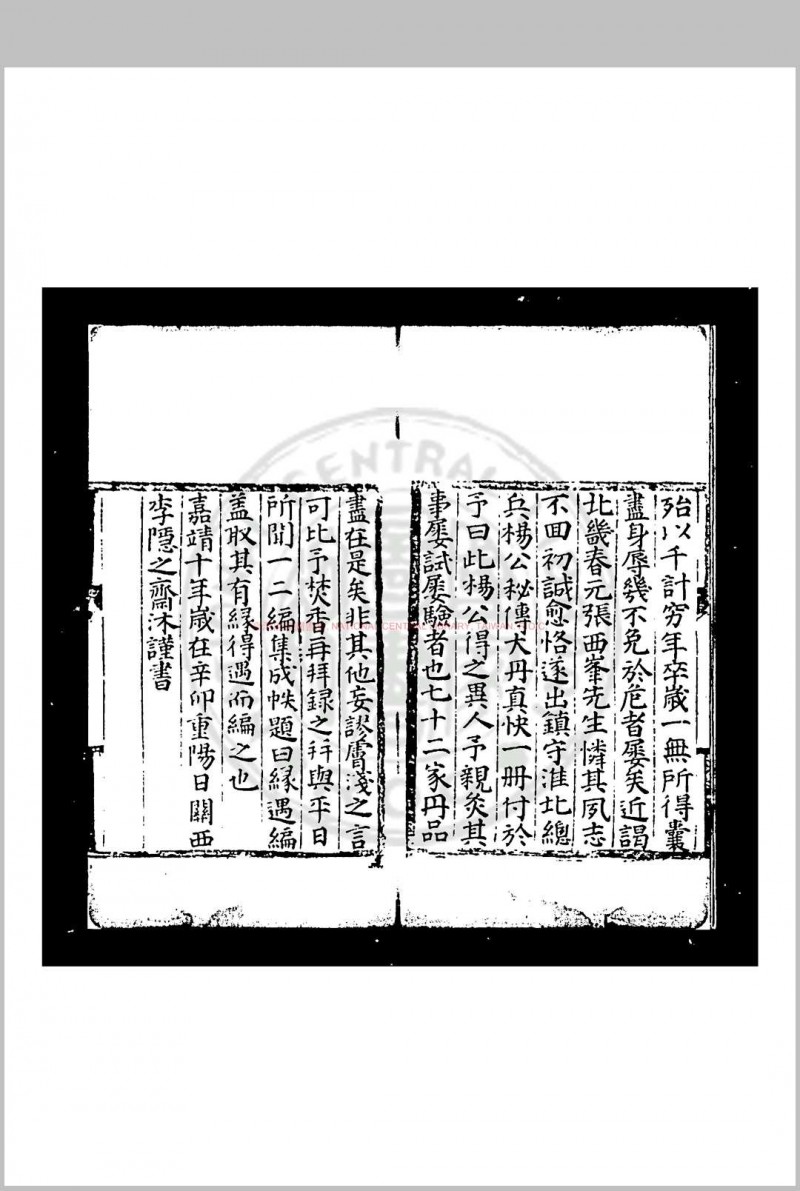 殆以千計窮年卒歲一無所得囊
盡身辱幾不免於危者屢矣近謁
北畿春元張西峯先生憐其夙志
不囬初誠愈恪遂出鎮守淮北總
兵楊公秘傳大丹真快一册付於
予曰此楊公得之異人予親灸其
事屡試屡驗者也七十二家丹品
盡在是矣非其他妄謬膚淺之言
可比予焚香再拜録之并與平日
所聞一二編集成帙題曰縁遇編
盖取其有縁得遇而編之也
嘉靖十年歲在辛卯重陽日關西
李隱之齋沐謹書
NATIONAL CENTRAL LIBRARY, TAIWAN
CENTRAL